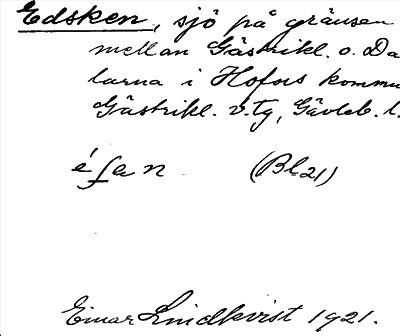 Edsken, sjö på gränsen
mellan Gästrikl. o. Da
larna i Hofors kommu
Gästrikl. v.tg, Gävleb. l.
(Bl21)
Einar Lindkvist 1921.